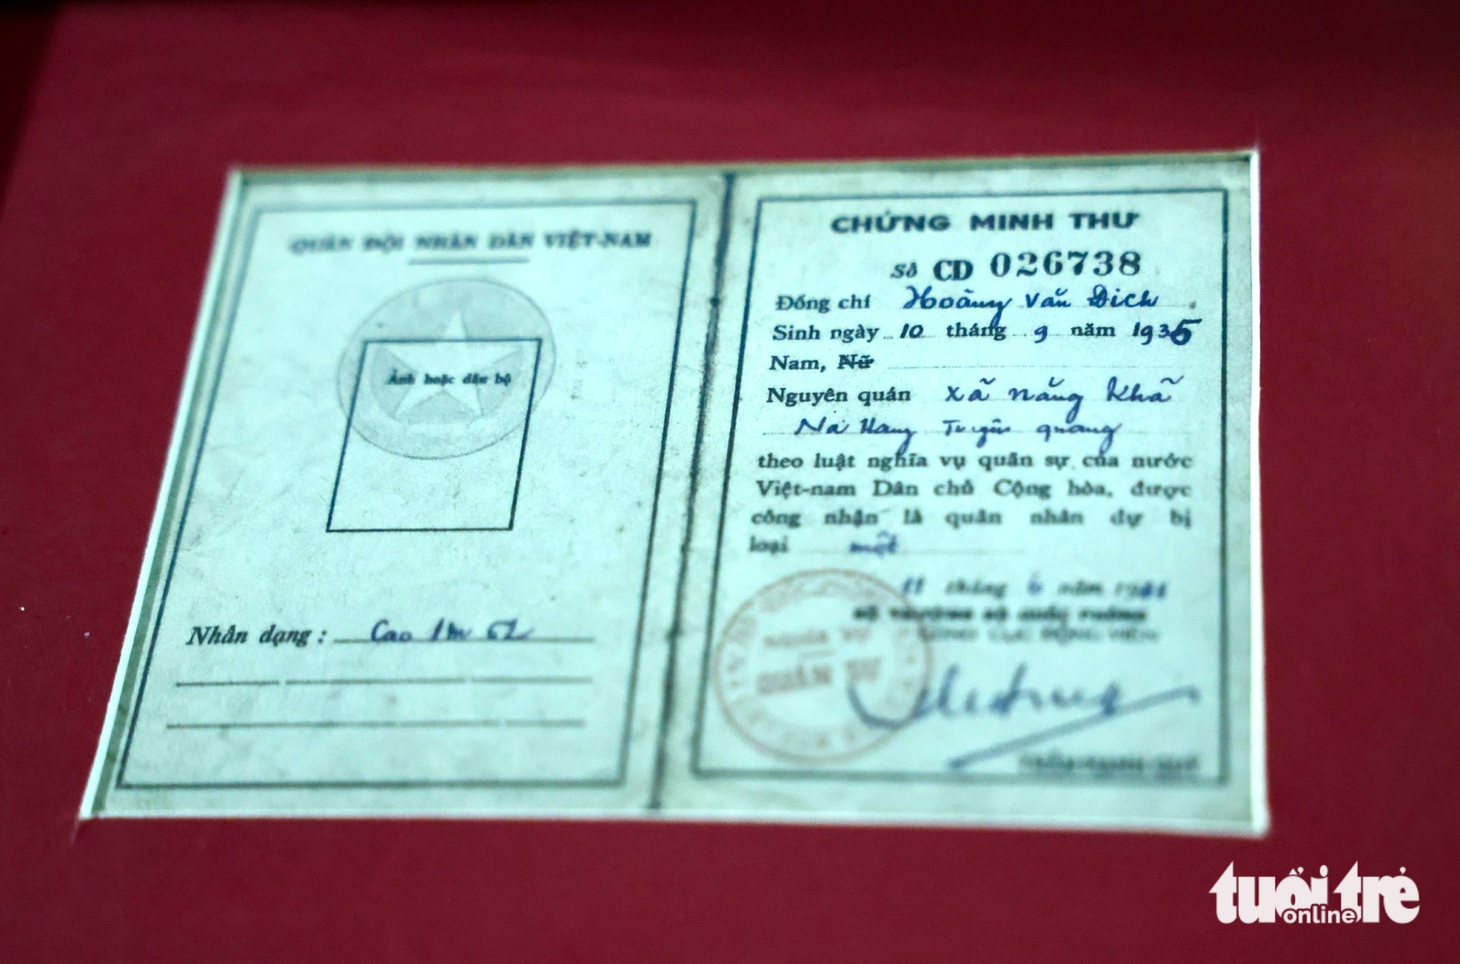 QUÂN ĐỘI NHÂN DÂN VIỆT-NAM
Ảnh hoặc dấu bộ
Nhân dạng : Cao 1m 62
CHỨNG MINH THƯ
Số CD 026738
Đồng chí Hoàng Văn Đich
Sinh ngày 10 tháng 9 năm 1935
Nam, Nữ
Nguyên quán xã năng Khả
Na Hang Tuyên quang
theo luật nghĩa vụ quân sự của nước
Việt-nam Dân chủ Cộng hòa, được
công nhận là quân nhân dự bị
loại một
11 tháng 6 năm
NGHĨA VỤ
QUÂN SỰ
tuổi trẻ
online